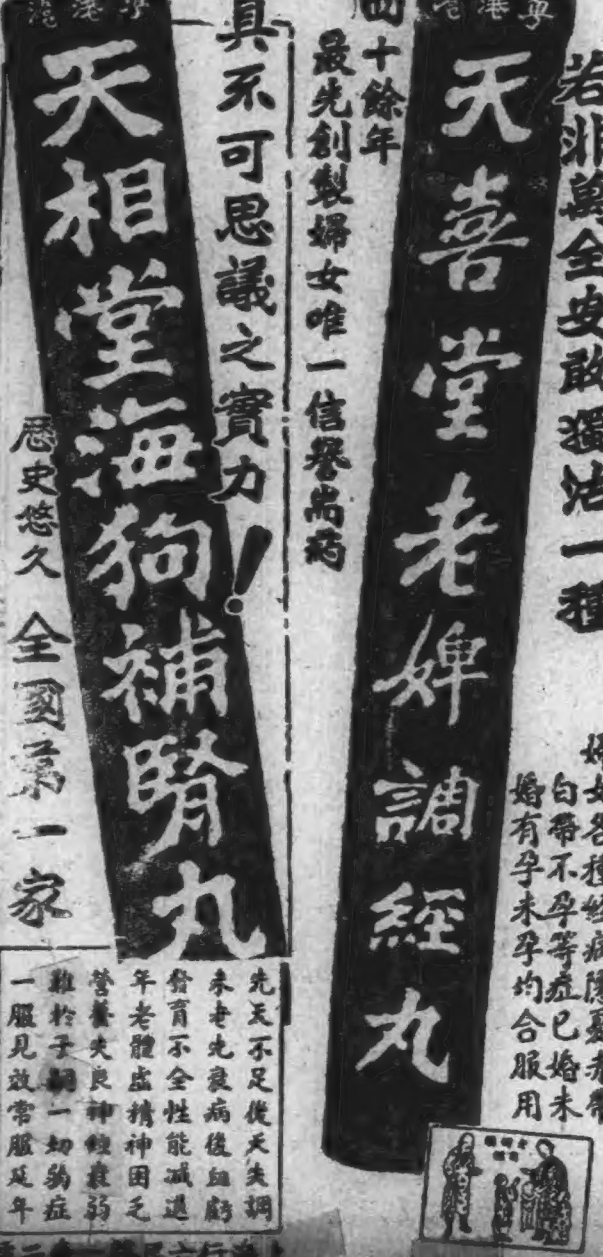 若非萬全安敢獨沽一種
婦女各種經病隱憂赤帶
白帶不孕等症已婚未
婚有孕未孕均合服用
粵港滬
天喜堂老婢調經丸
四十餘年
最先創製婦女唯一信譽尚药
具不可思議之實力!
粵港滬
天相堂海狗補腎丸
歷史悠久 全國第一家
先天不足後天失調
未老先衰病後血虧
發育不全性能減退
年老體虛精神困乏
營養失良神經衰弱
難於子嗣一切夠症
一服見效常服延年